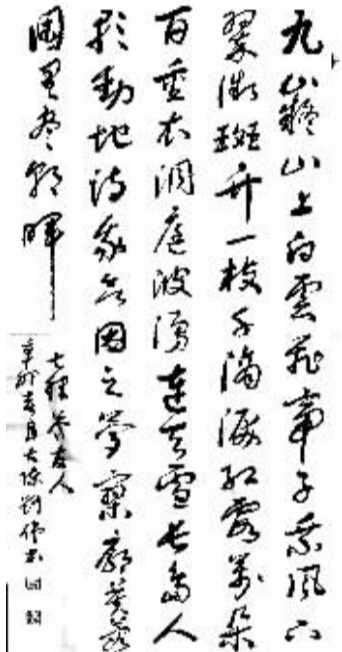 九嶷山上白雲飛帝子乘風下
翠微斑竹一枝千滴淚紅霞萬朵
百重衣洞庭波湧連天雪長島人
歌動地詩我欲因之夢寥廓芙蓉
國里盡朝暉
七律答友人
辛卯春月